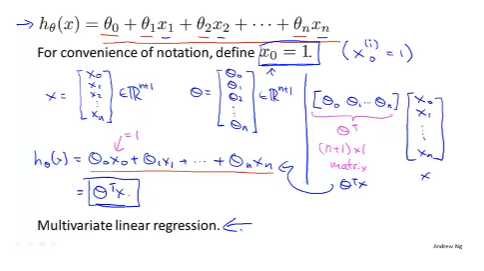 → hθ(x) = θ0 + θ1x1 + θ2x2 + ··· + θnxn
For convenience of notation, define x0 = 1. (x0^(i) = 1)
x = [x0 x1 x2 ⋮ xn] ∈ ℝ^(n+1) θ = [θ0 θ1 θ2 ⋮ θn] ∈ ℝ^(n+1)
[θ0 θ1 ··· θn] [x0 x1 ⋮ xn]
θ^T
(n+1) × 1
matrix
x
θ^T x
= 1
hθ(x) = θ0x0 + θ1x1 + ··· + θnxn
= θ^T x.
Multivariate linear regression. ←
Andrew Ng